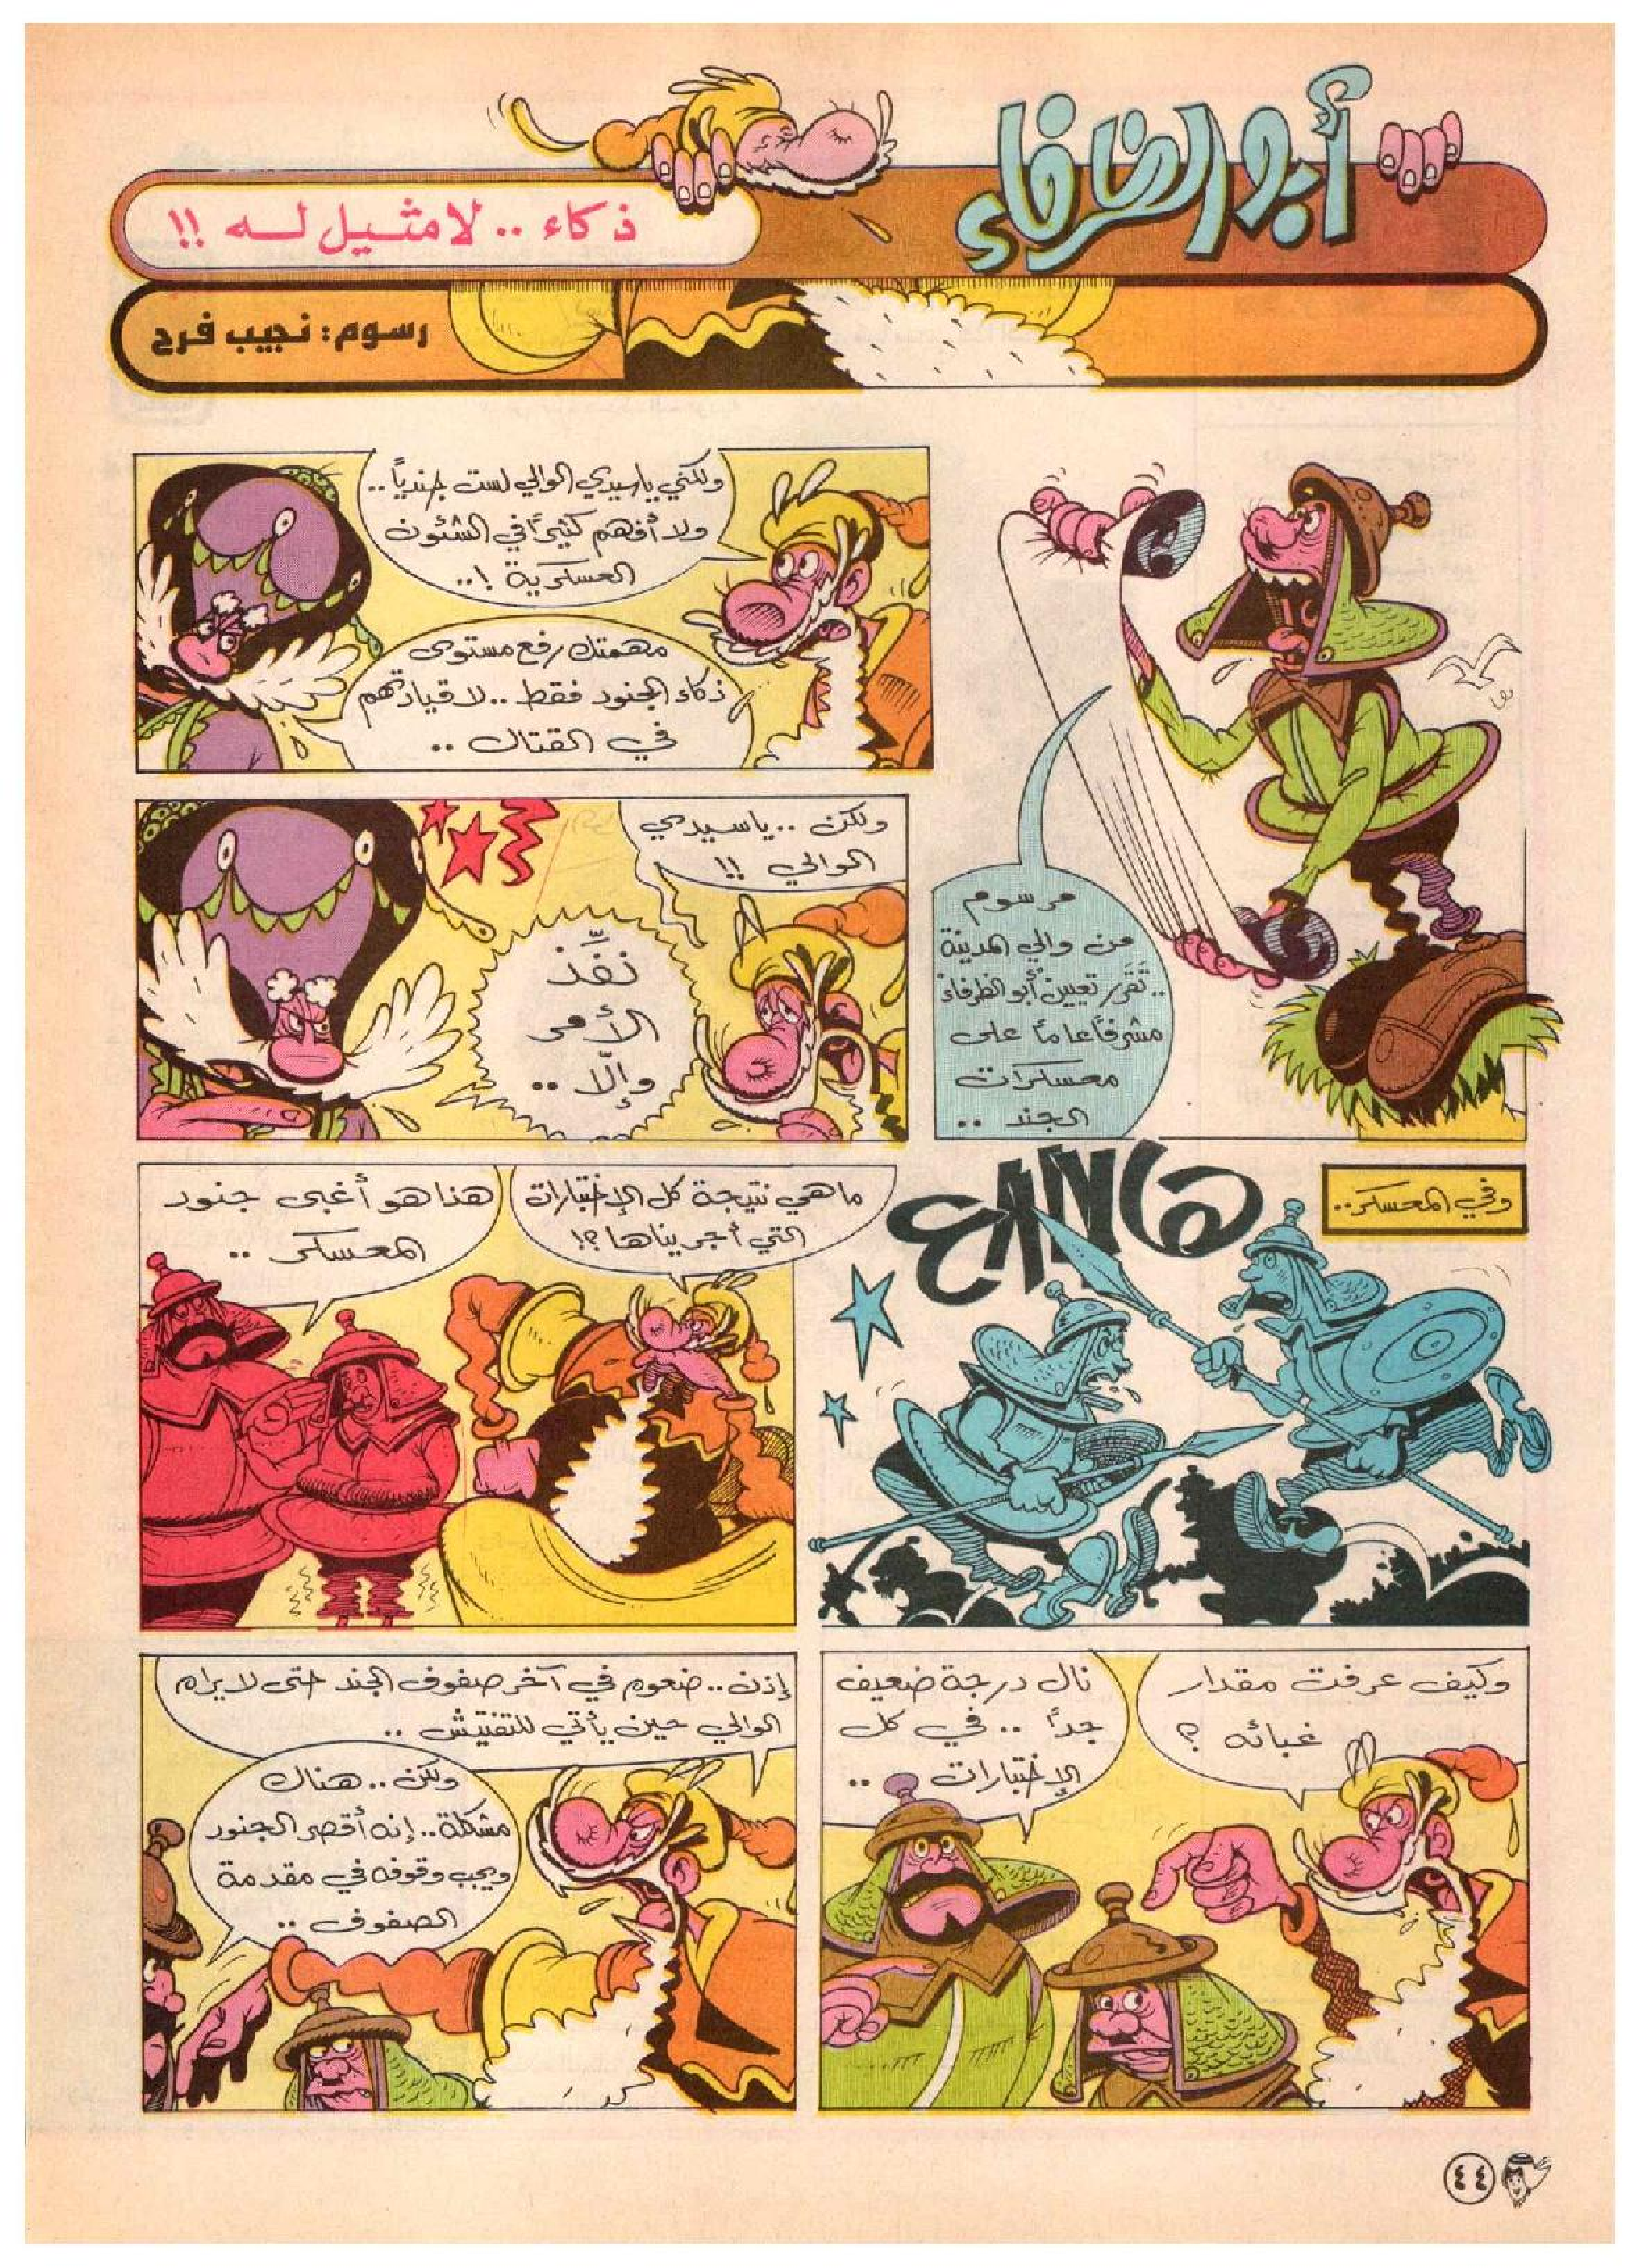 أبو الظرفاء
ذكاء .. لا مثيل له !!
رسوم: نجيب فرح
مرسوم
من والي المدينة
.. تَقَرر تعيين أبو الظرفاء
مشرفًا عامًا على
معسكرات
الجند ..
ولكني يا سيدي الوالي لست جنديًا ..
ولا أفهم كثيرًا في الشئون
العسكرية !..
مهمتك رفع مستوى
ذكاء الجنود فقط .. لا قيادتهم
في القتال ..
ولكن .. يا سيدي
الوالي !!
نفّذ
الأمر
وإلّا ..
وفي المعسكر ..
ما هي نتيجة كل الإختبارات
التي أجريناها ؟!
هذا هو أغبى جنود
المعسكر ..
وكيف عرفت مقدار
غبائه ؟
نال درجة ضعيف
جدًا .. في كل
الإختبارات ..
إذن .. ضعوه في آخر صفوف الجند حتى لا يراه
الوالي حين يأتي للتفتيش ..
ولكن .. هناك
مشكلة .. إنه أقصر الجنود
ويجب وقوفه في مقدمة
الصفوف ..
٤٤